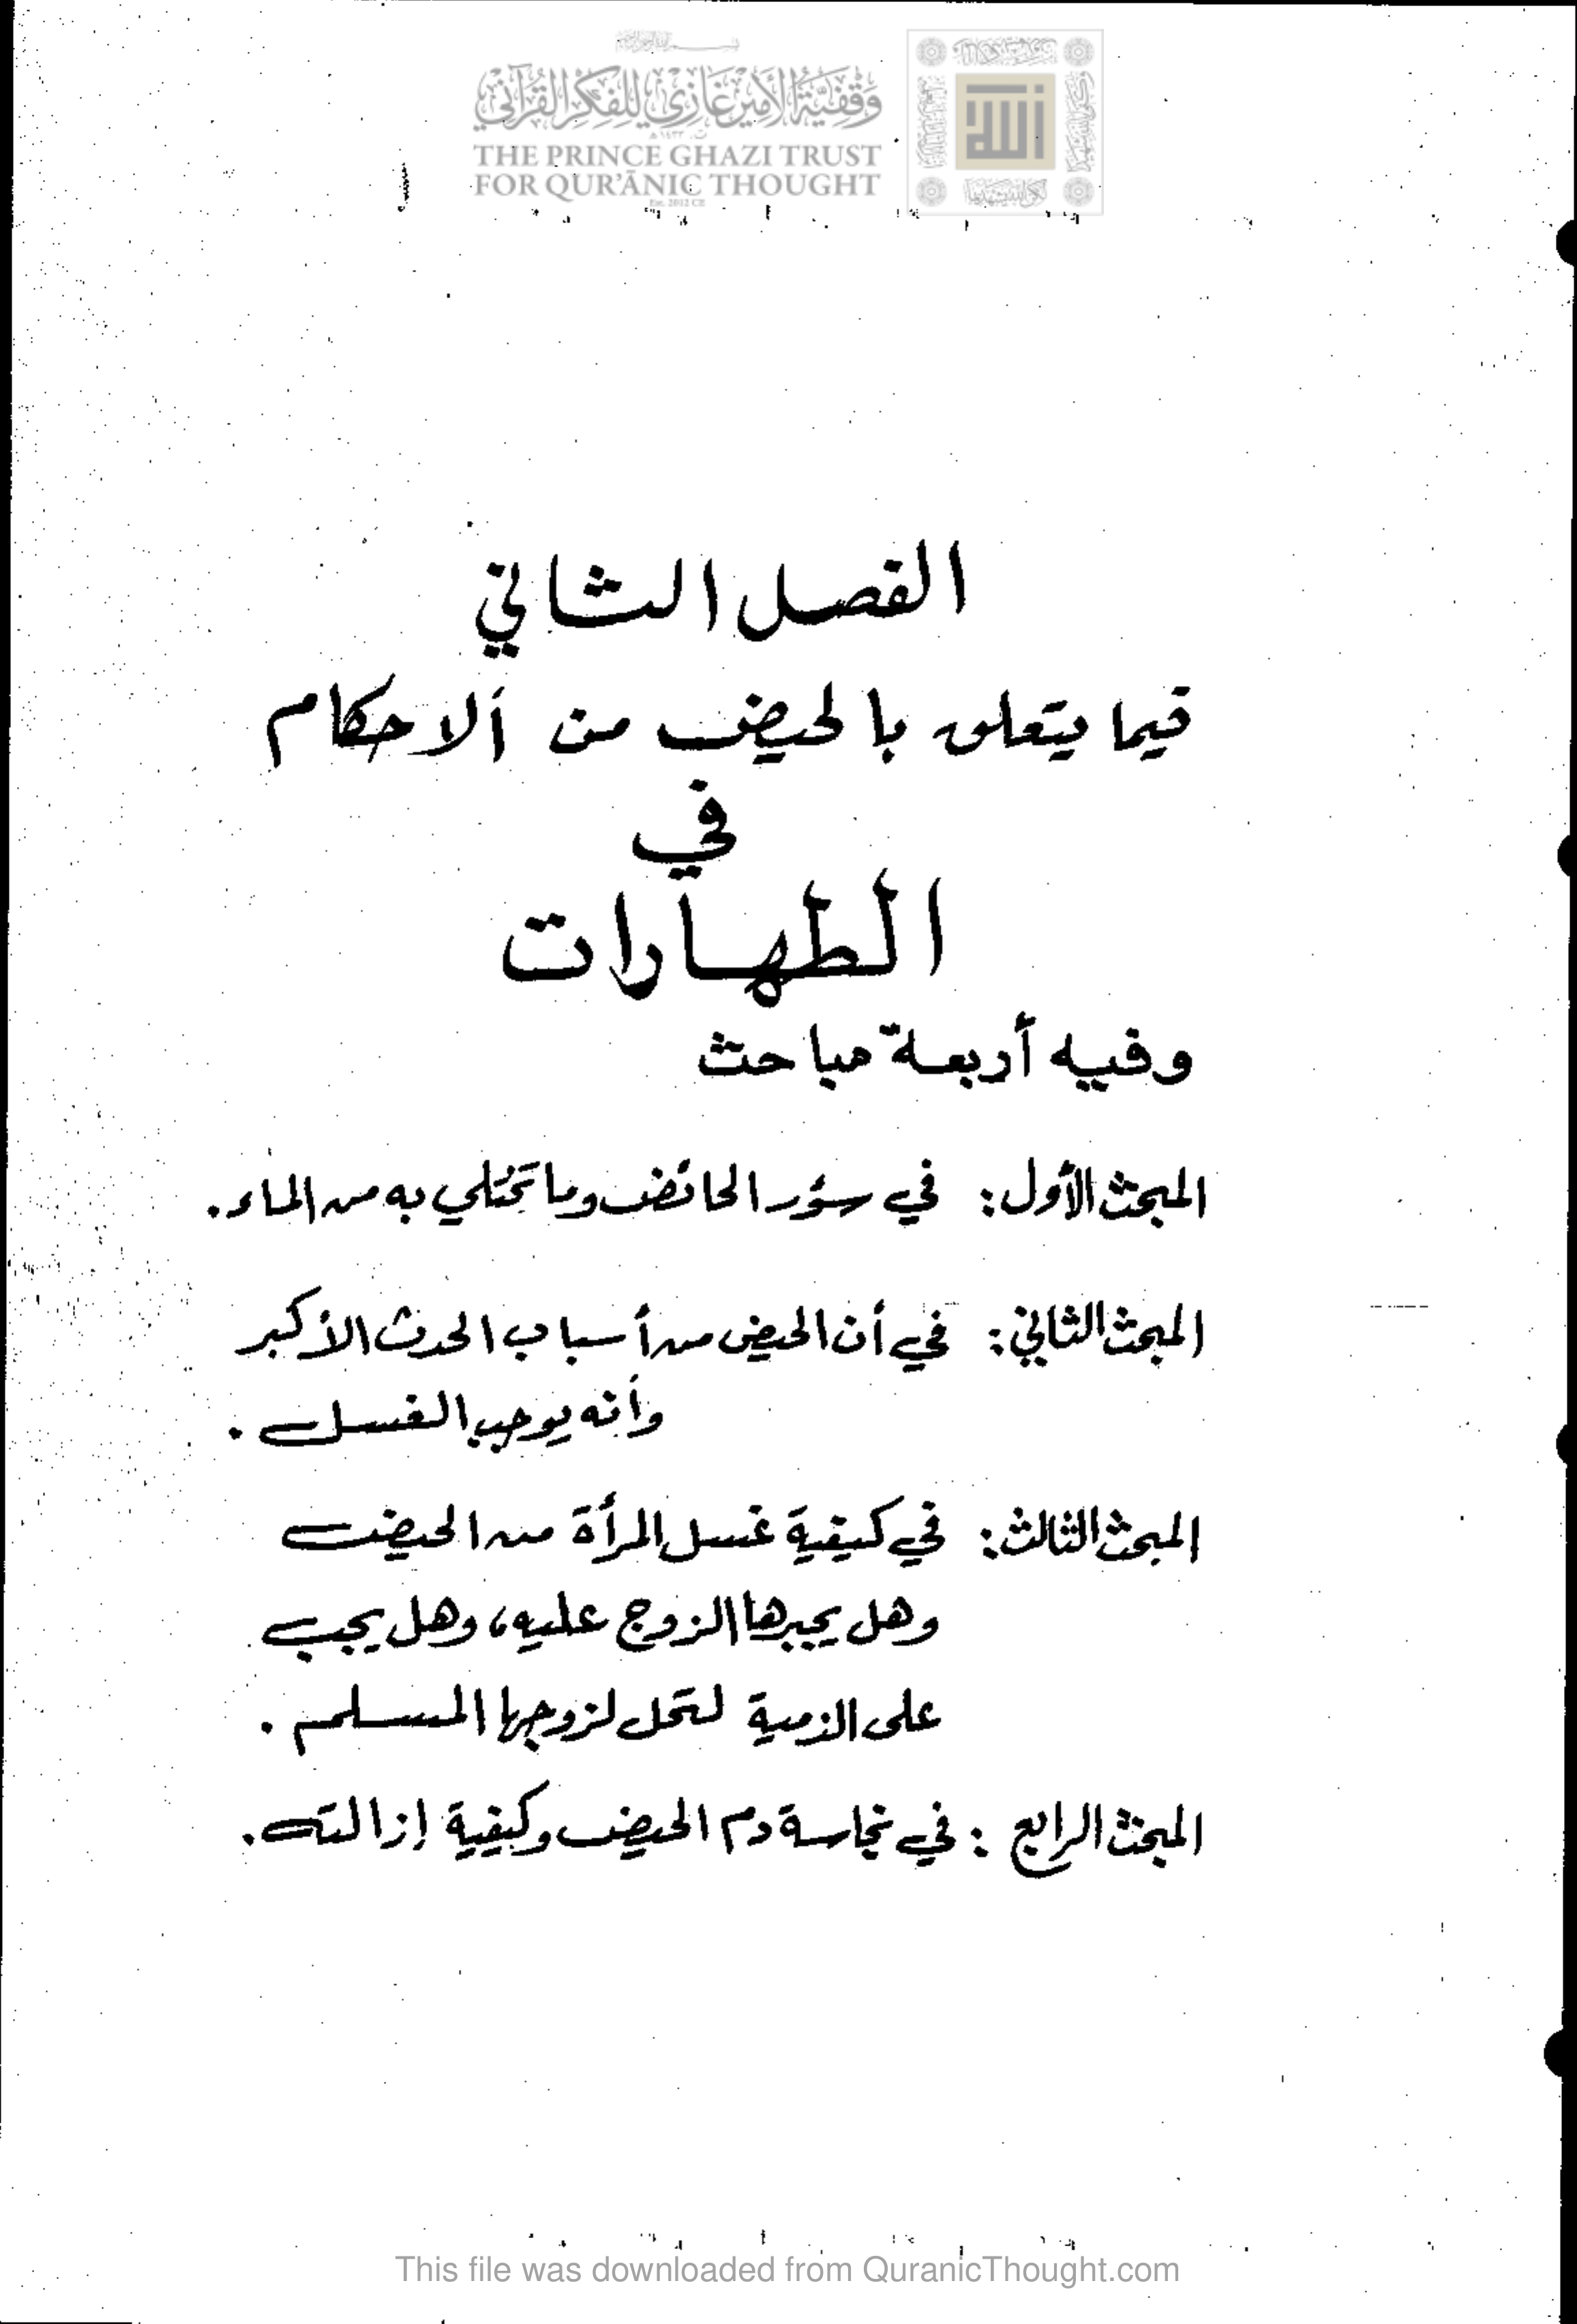 وقفية الأمير غازي للفكر القرآني
THE PRINCE GHAZI TRUST
FOR QUR'ĀNIC THOUGHT
Est. 2012 CE
الفصل الثاني
فيما يتعلق بالحيض من ألاحكام
في
الطهارات
وفيه أربعة مباحث
المبحث الأول: في سؤر الحائض وما تختلي به من الماء.
المبحث الثاني: في أن الحيض من أسباب الحدث الأكبر
وأنه يوجب الغسل.
المبحث الثالث: في كيفية غسل المرأة من الحيض
وهل يجبرها الزوج عليه، وهل يجب
على الذمية لتحل لزوجها المسلم.
المبحث الرابع: في نجاسة دم الحيض وكيفية إزالته.
This file was downloaded from QuranicThought.com